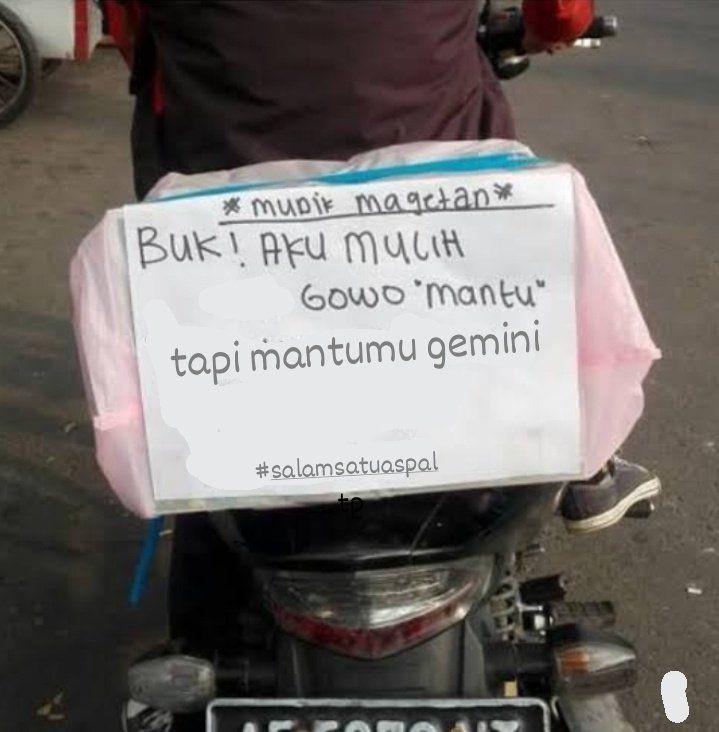 * MUDIK magetan *
BUK! AKU MULIH
GOWO "mantu"
tapi mantumu gemini
#salamsatuaspal
tp